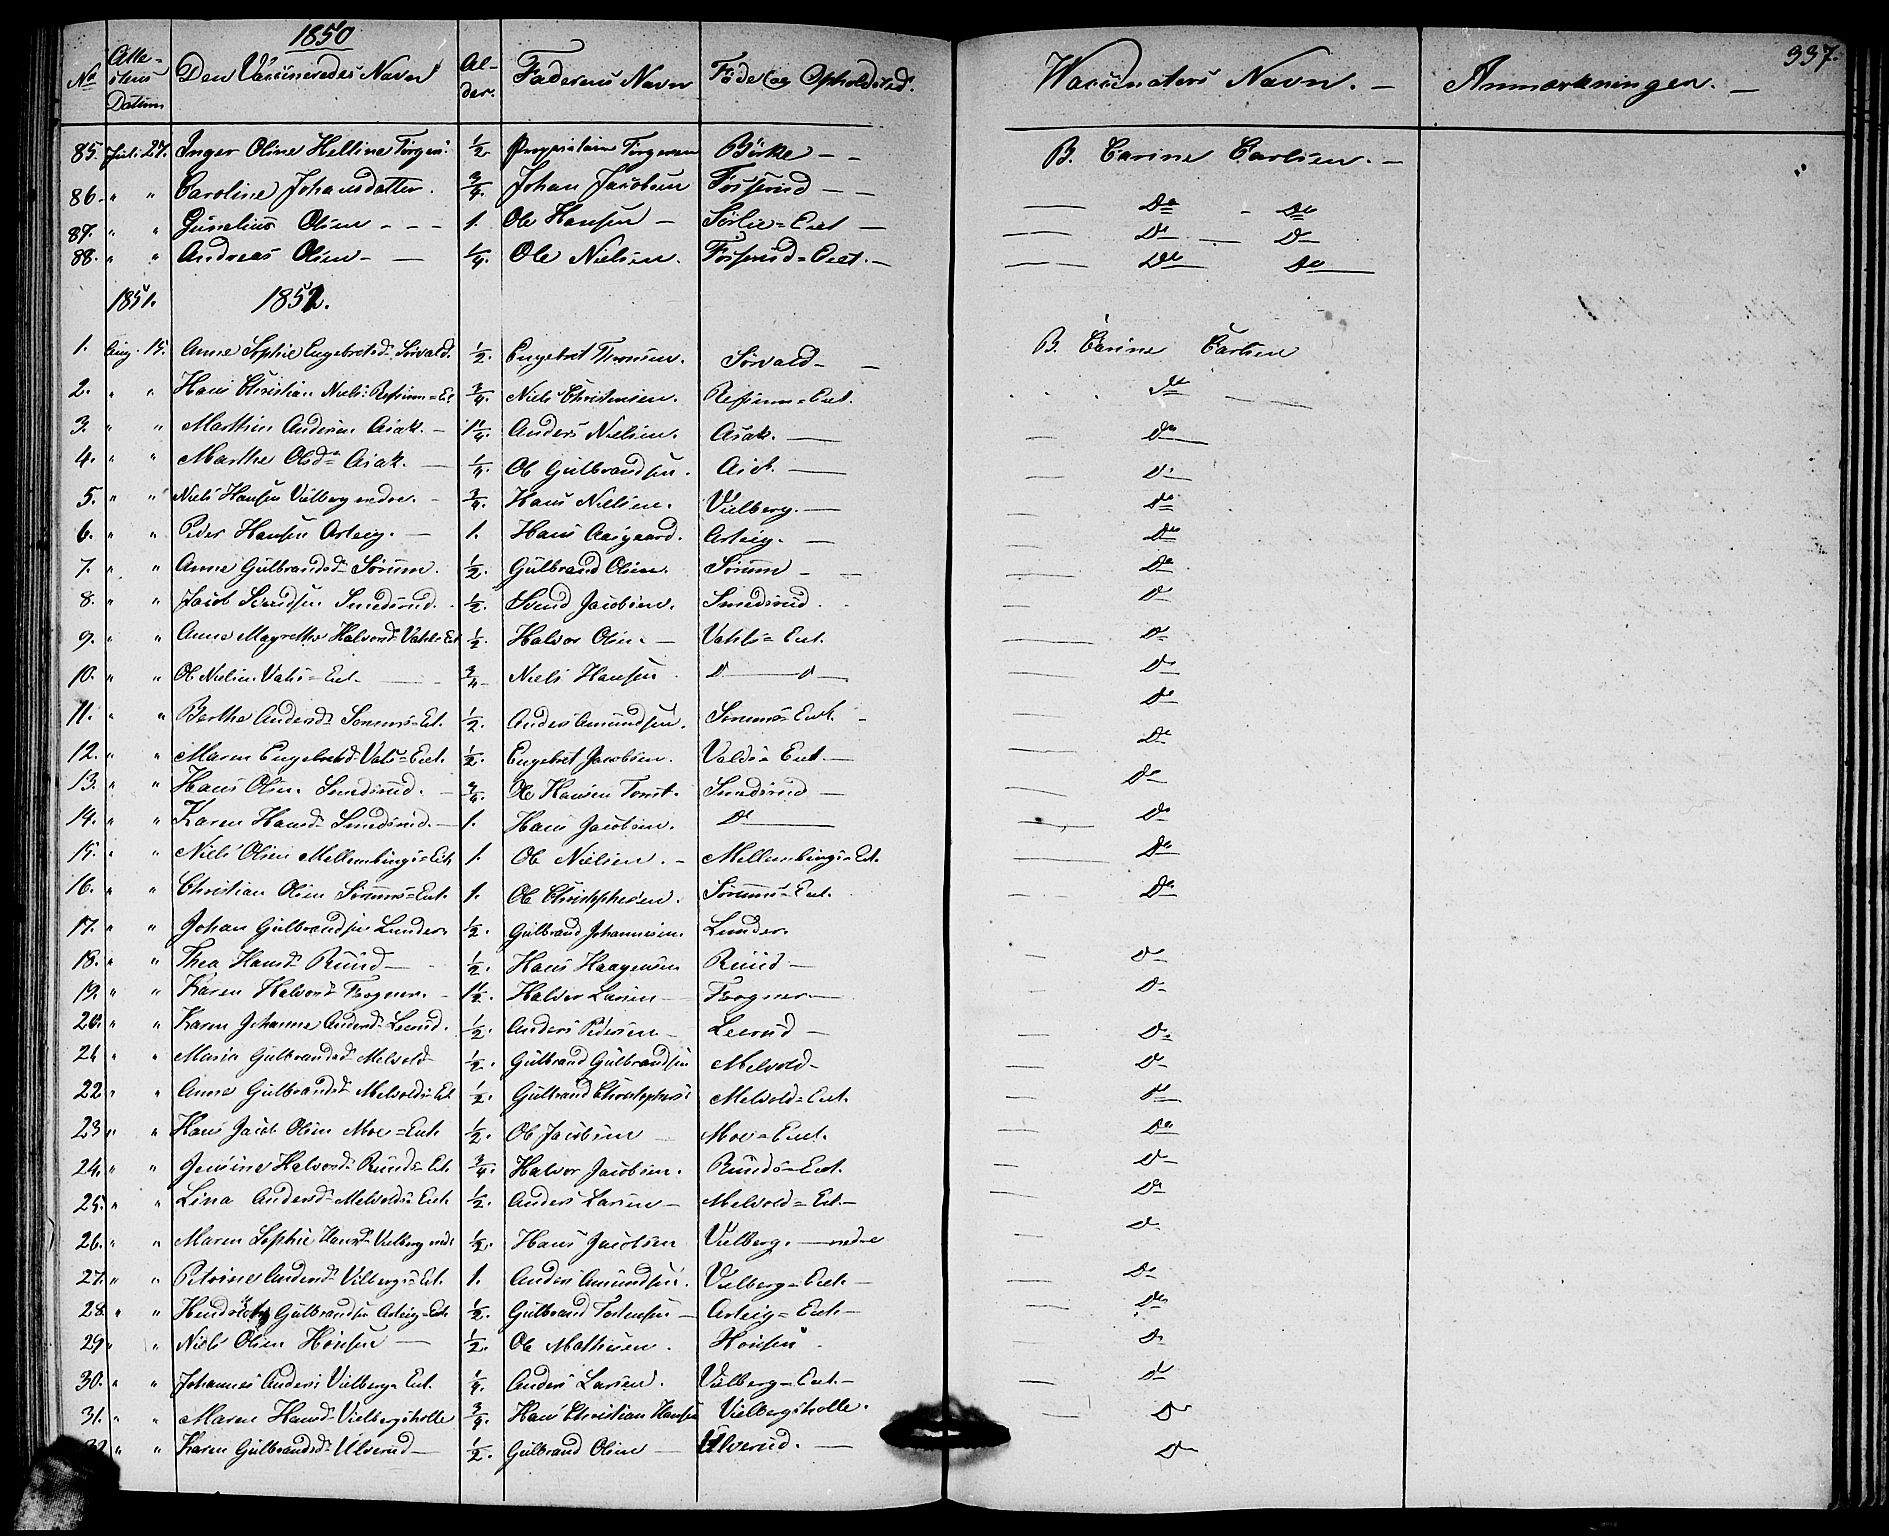 1850
337.
No Atte-stens Datum Den Vaccineredes Navn Al-der. Faderens Navn Føde og Opholdsted. Vaccinators Navn. — Anmærkninger. —
85. Juli 27. Inger Oline Helline Törgers: ½ Proprietair Törgersen Börke — — B. Carine Carlsen. —
86. " " Caroline Johansdatter. ¾. Johan Jacobsen Fosserud — — Do - Do
87. " " Gunelius Olsen - - - 1. Ole Hansen — Sørlie=Eiet — Do — Do
88. " " Andreas Olsen - — ¼. Ole Nielsen. Fosserud=Eiet. — Do Do
1851. 1851.
1. Aug. 15. Anne Sophie Engebretsd. Sörvald. ½. Engebret Thronsen. Sörvald - — B. Carine Carlsen
2. " " Hans Christian Niels: =Et ¾. Niels Christensen. =Eiet. Do
3. " " Marthin Andersen Asak. — 1¼. Anders Nielsen. Asak. — Do
4. " " Marthe Olsd. Asak. — ¼. Ole Gulbrandsen. Asak. — Do
5. " " Niels Hansen Vielberg nedre. - ¾. Hans Nielsen. Vielberg. — Do
6. " " Peder Hansen Arteig. — 1. Hans Aasgaard. Arteig. — Do
7. " " Anne Gulbrandsd. Sörum. ½. Gulbrand Olsen. Sörum - — Do
8. " " Jacob Svendsen Smedsrud. ½. Svend Jacobsen. Smedsrud. Do
9. " " Anne Magrethe Halvorsd. Vahls=Et ½. Halvor Olsen — Vahls=Eiet. Do
10. " " Ole Nielsen Vals=Eiet. — ¾. Niels Hansen D — D — Do
11. " " Berthe Andersd. Sörums=Et. ½. Anders Amundsen. Sörums=Eiet. - Do
12. " " Maren Engebretsd. Vals=Eiet. ½. Engebret Jacobsen. Valds=Eiet. — Do
13. " " Hans Olsen Smedsrud. — ¾. Ole Hansen Tomt. Smedsrud — Do
14. " " Karen Hansd. Smedsrud. — 1. Hans Jacobsen. Do — Do
15. " " Niels Olsen Mellembings=Eiet 1. Ole Nielsen. — Mellembings=Et. Do
16. " " Christian Olsen Sörums=Eiet. 1. Ole Christophersen. Sörums=Eiet. Do
17. " " Johan Gulbrandsen Lunder. ½. Gulbrand Johannesen. Lunder.
18. " " Thea Hansd. Ruud — ½. Hans Haagensen Ruud — Do
19. " " Karen Halvorsd. Frogner. - 1½. Halvor Larsen — Frogner — Do
20. " " Karen Johanne Andersd. Leerud. ½. Anders Pedersen — Leerud — Do
21 " " Maria Gulbrandsd. Melvold ½. Gulbrand Gulbrandsen Melvold - Do
22. " " Anne Gulbrandsd. Melvolds=Et ½. Gulbrand Christophers: Melvold=Eiet. Do
23 " " Hans Jacob Olsen Moe=Eiet. ½. Ole Jacobsen — Moe=Eiet. Do
24. " " Jensine Halvorsd. Ruuds=Et. ¾. Halvor Jacobsen. Ruuds=Eiet. Do
25. " " Lina Andersd. Melvolds=Eiet. ½. Anders Larsen — Melvold=Eiet — Do
26. " " Maren Sophie Hansd. Vielberg ned: ½. Hans Jacobsen Vielberg. — nedre Do
27. " " Petrine Andersd. Vilbergs=Et. 1. Anders Amundsen. Vielberg=Eiet. — Do
28. " " Gulbrandsen Arteig=Eiet ½. Gulbrand Tostensen — Arteig=Eiet. — Do
29 " " Niels Olsen Hönsen — ½. Ole Mathisen. Hönsen . Do
30. " " Johannes Anders: Vielberg=Eiet. ¼. Anders Larsen. Vielberg=Eiet. — Do
31. " " Maren Hansd. Vielbergskolle ¾. Hans Christian Hansen Vielbergskolle. Do
32. " " Karen Gulbrandsd. Ulverud — ½. Gulbrand Olsen — Ulverud. — Do